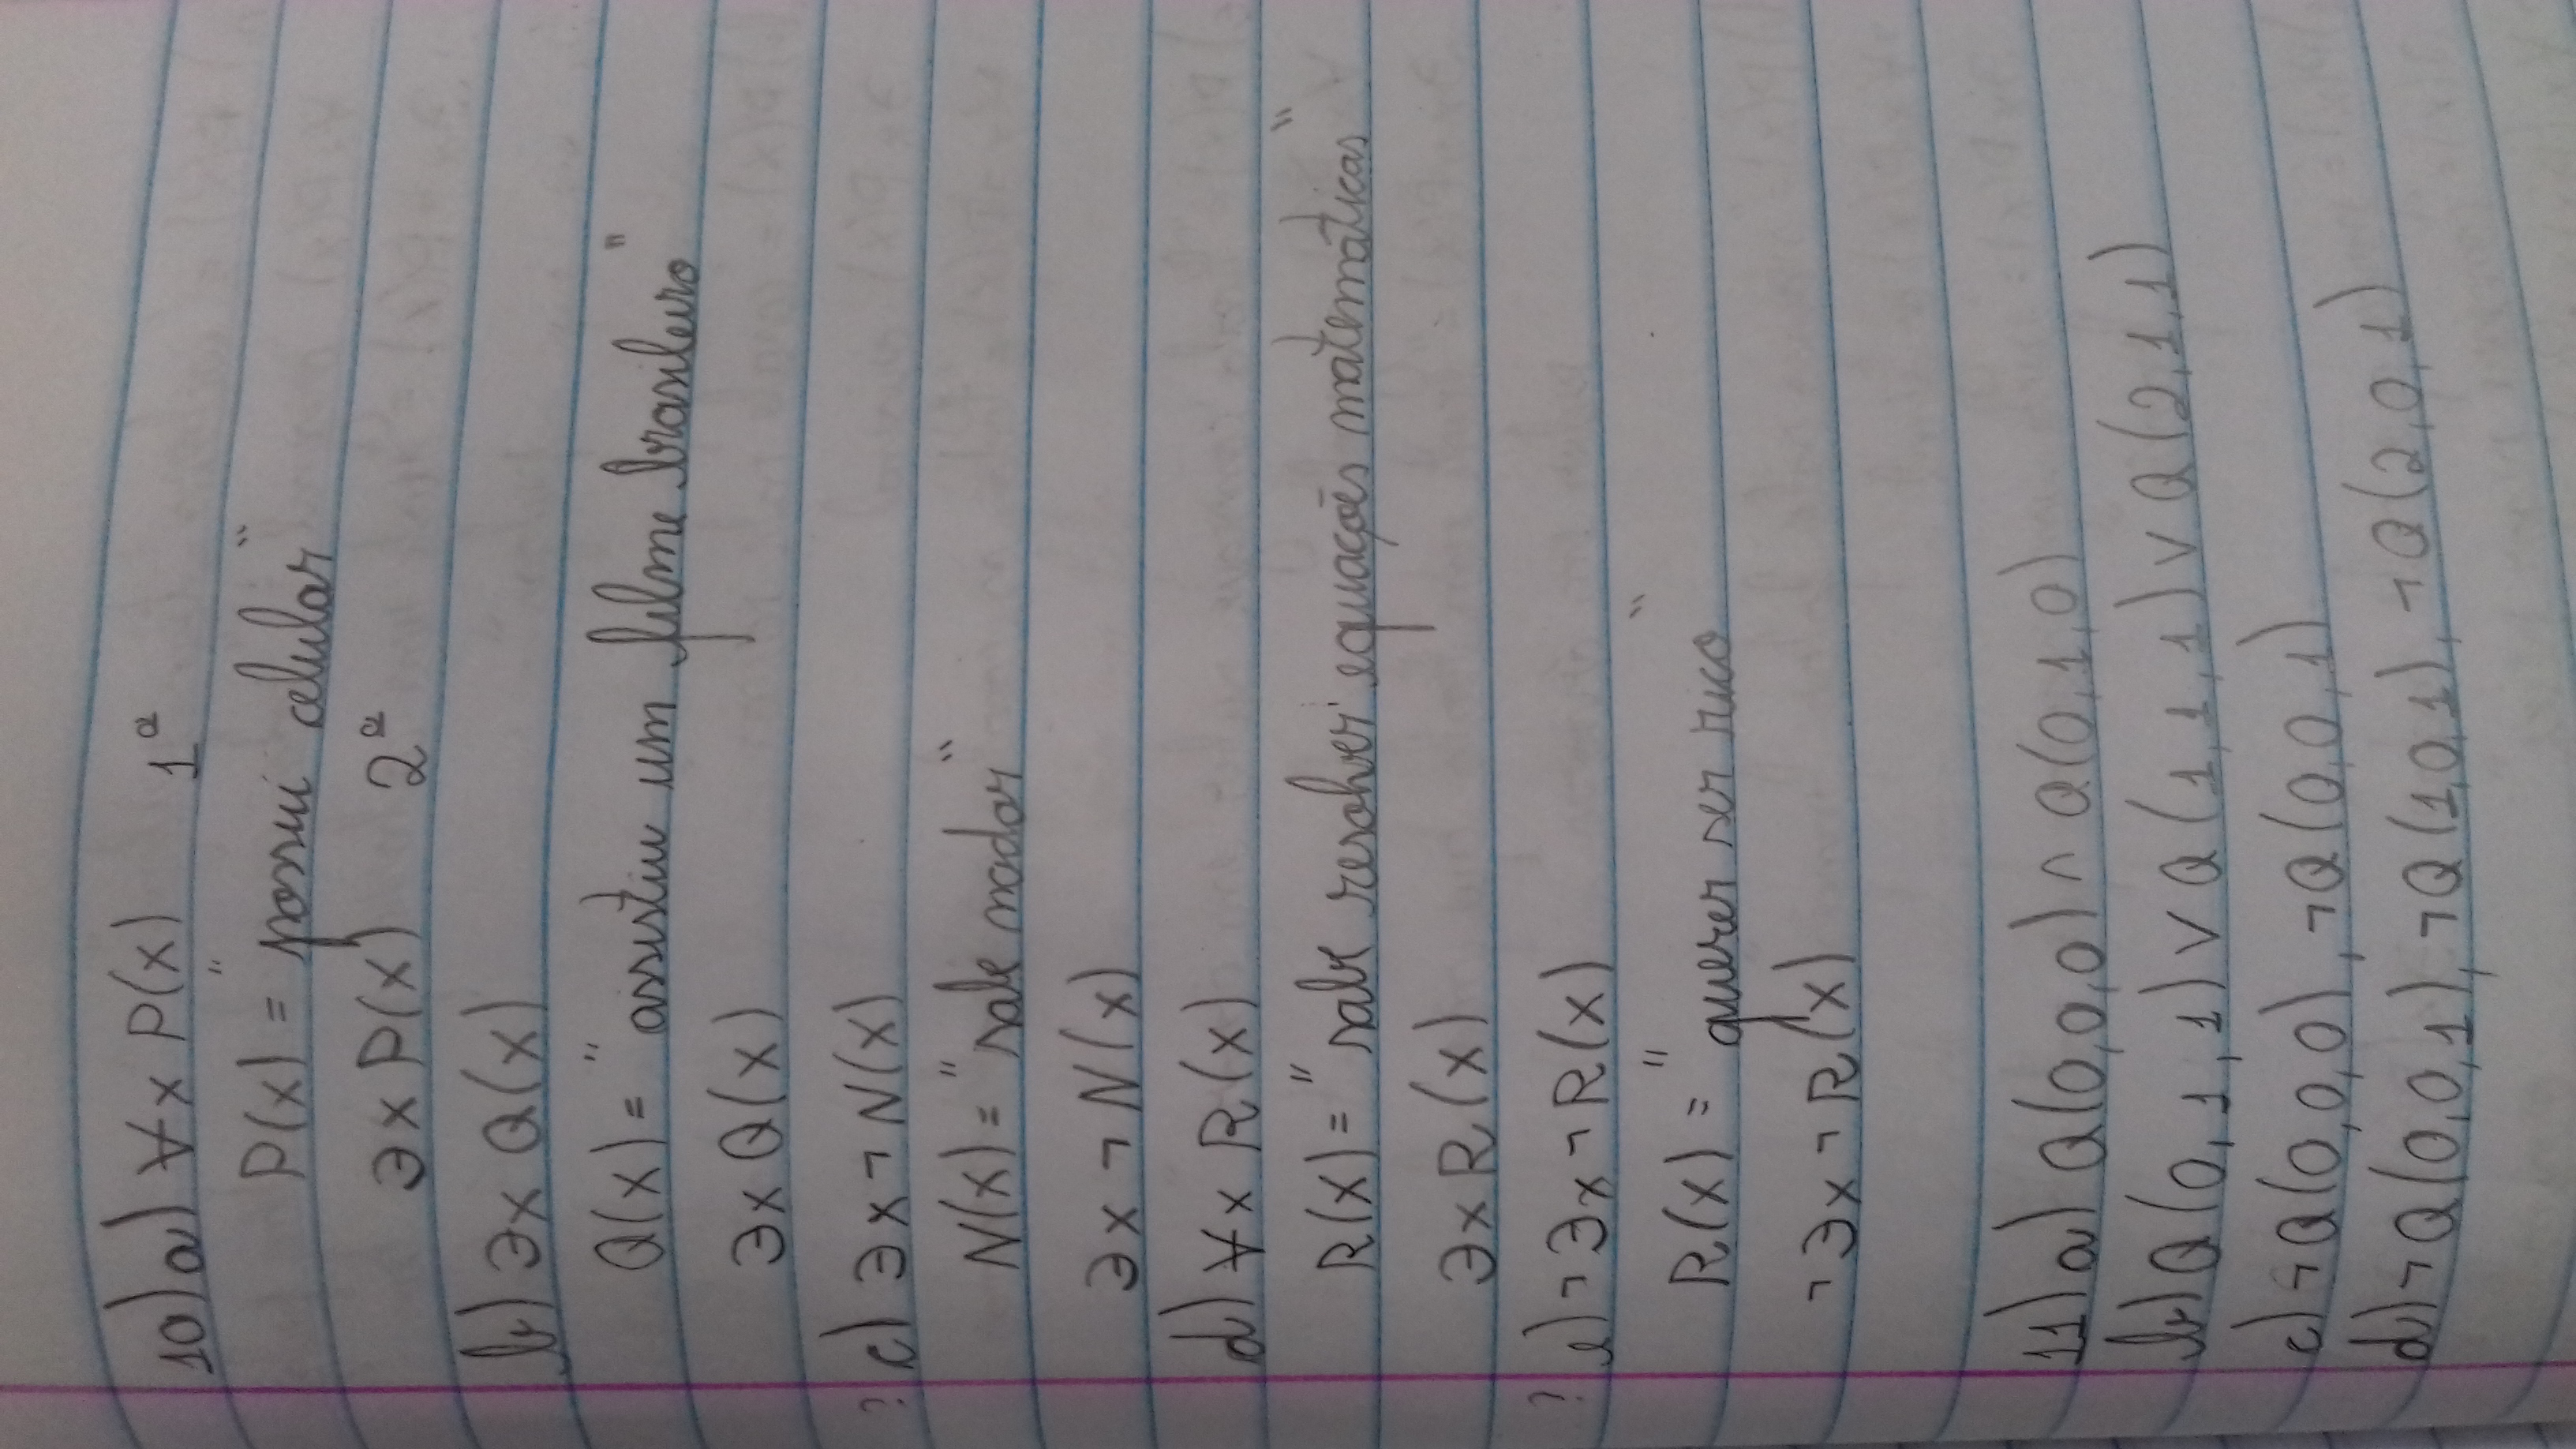 10) a) ∀x P(x) 1ª
P(x) = "possui celular"
∃x P(x) 2ª
b) ∃x Q(x)
Q(x) = "assistiu um filme brasileiro"
∃x Q(x)
? c) ∃x ¬ N(x)
N(x) = "sabe nadar"
∃x ¬ N(x)
d) ∀x R(x)
R(x) = "sabe resolver equações matemáticas"
∃x R(x)
? e) ¬∃x ¬ R(x)
R(x) = "querer ser rico"
¬∃x ¬ R(x)
11) a) Q(0,0,0) ∧ Q(0,1,0)
b) Q(0,1,1) ∨ Q(1,1,1) ∨ Q(2,1,1)
c) ¬Q(0,0,0), ¬Q(0,0,1)
d) ¬Q(0,0,1), ¬Q(1,0,1), ¬Q(2,0,1)